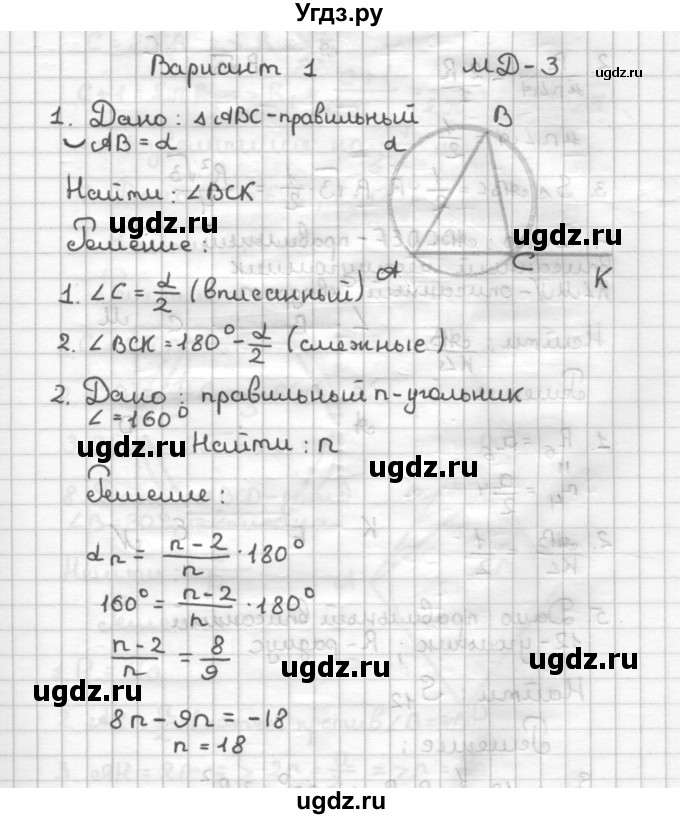 Угдз.ру
Вариант 1 МД-3
ugdz.ru
1. Дано: △ABC-правильный
◡AB = α
B
α
Найти: ∠BCK
ugdz.ru
ugdz.ru
Решение:
A
C
K
1. ∠C = α/2 (вписанный)
2. ∠BCK = 180° - α/2 (смежные)
2. Дано: правильный n-угольник
∠ = 160°
ugdz.ru
Найти: n
ugdz.ru
Решение:
αn = (n-2)/n · 180°
ugdz.ru
160° = (n-2)/n · 180°
(n-2)/n = 8/9
ugdz.ru
ugdz.ru
ugdz.ru
8n - 9n = -18
n = 18
ugdz.ru
ugdz.ru